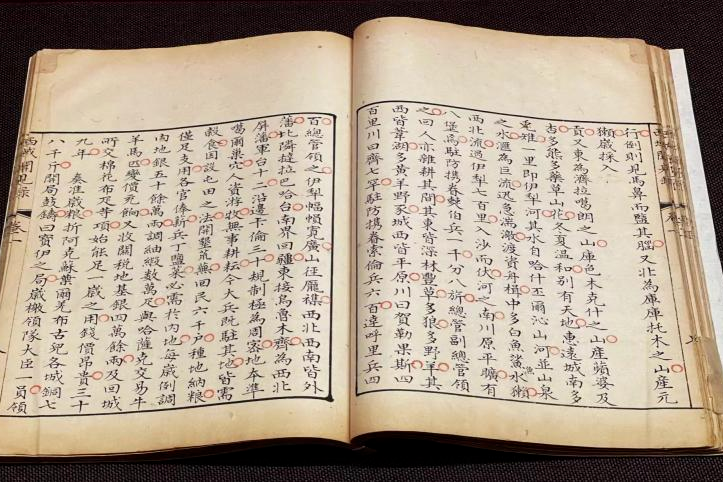 行倒則見馬鼻而盬其腦又北為庫庫托木之山產元
獺歲採入
貢又東為濟拉噶朗之山庫色木克什之山產蘋婆及
吉多熊多藥草山花冬夏溫和別有天地惠遠城南多
雉一里即伊犁河其水自哈什丕爾沁山河並山泉
之水滙為巨流迅急湍澈渡資舟楫中多白魚鯊水獺
西北流過伊犁七百里入沙而伏河之南川原平曠有
八堡焉駐防攜眷兵一千分八旂總管副總管領
之回人亦雜耕其間其東皆深林豐草多狼多野羊其
西皆葦湖多黃羊野豕城西皆平原川曰賀勒果斯四
百里川曰齊七罕駐防攜眷索倫兵六百遠呼里兵四
百總管領之伊犁幅幀寬廣山徑龐襍西北西南皆外
藩北隣撻拉巴哈台南界回疆東接烏魯木齊為西北
屏藩軍台十二沿邊卡倫三十規制極為周密地本準
噶爾巢穴人資游牧無事耕耘今大兵既駐其地皆需
穀食因設屯田之法開墾荒蕪回民六千戶種地納糧
僅足支用各官俸薪兵丁鹽菜必需於內地每歲例調
內地銀五十餘萬兩調紬緞數萬疋與哈薩克交易牛
羊馬匹變價充餉又收關稅地基銀四萬餘兩及回城
所交棉花布疋等項始能足一歲之用錢價昂貴三十
九年奏准歲糧折阿克蘇葉爾羌布古爾各城銅七
八千觔開局鼓鑄曰寶伊之局歲檄領隊大臣一員領
西域聞見錄 卷一